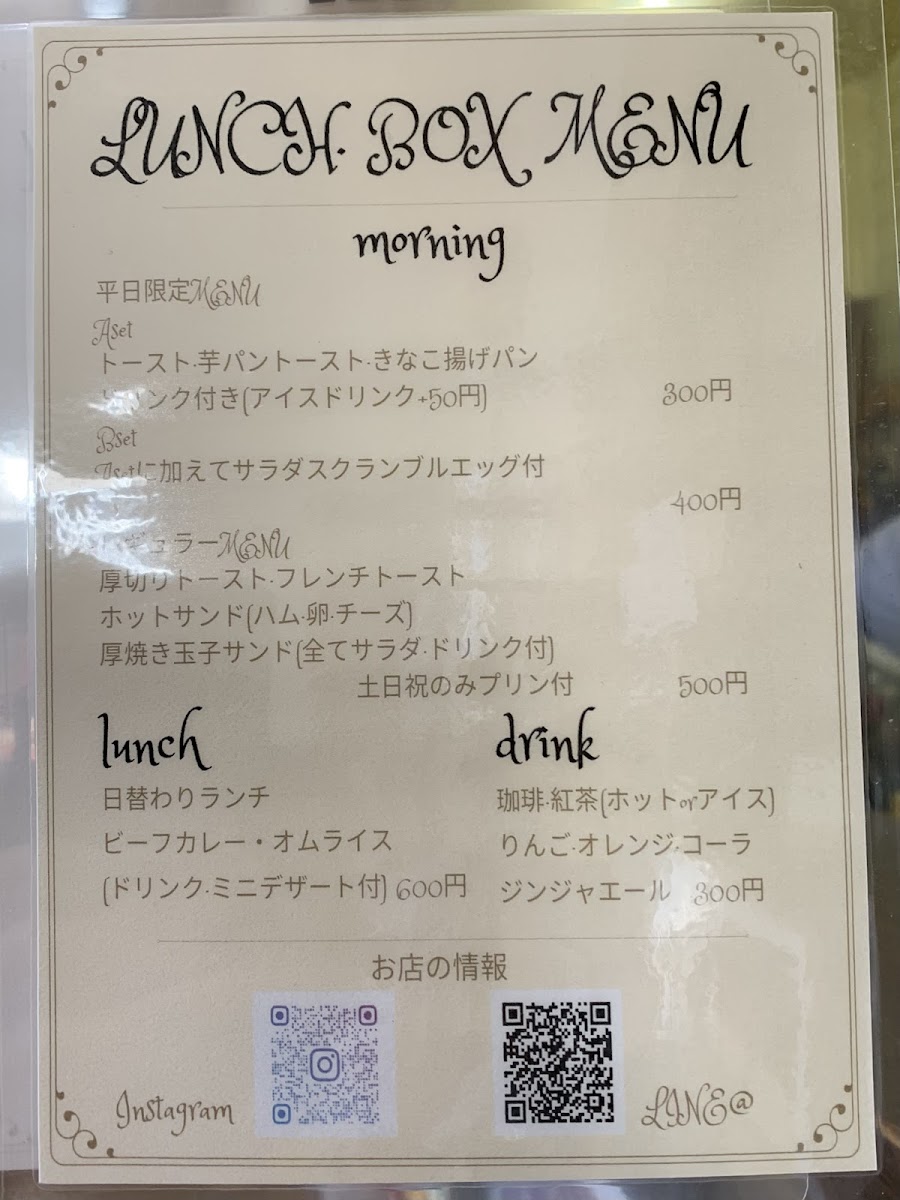 LUNCH BOX MENU
morning
平日限定MENU
Aset
トースト·芋パントースト·きなこ揚げパン
ドリンク付き(アイスドリンク+50円) 300円
Bset
Asetに加えてサラダスクランブルエッグ付
400円
レギュラーMENU
厚切りトースト·フレンチトースト
ホットサンド(ハム·卵·チーズ)
厚焼き玉子サンド(全てサラダ·ドリンク付)
土日祝のみプリン付 500円
lunch
日替わりランチ
ビーフカレー・オムライス
(ドリンク·ミニデザート付) 600円
drink
珈琲·紅茶(ホットorアイス)
りんご·オレンジ·コーラ
ジンジャエール 300円
お店の情報
Instagram
LINE@